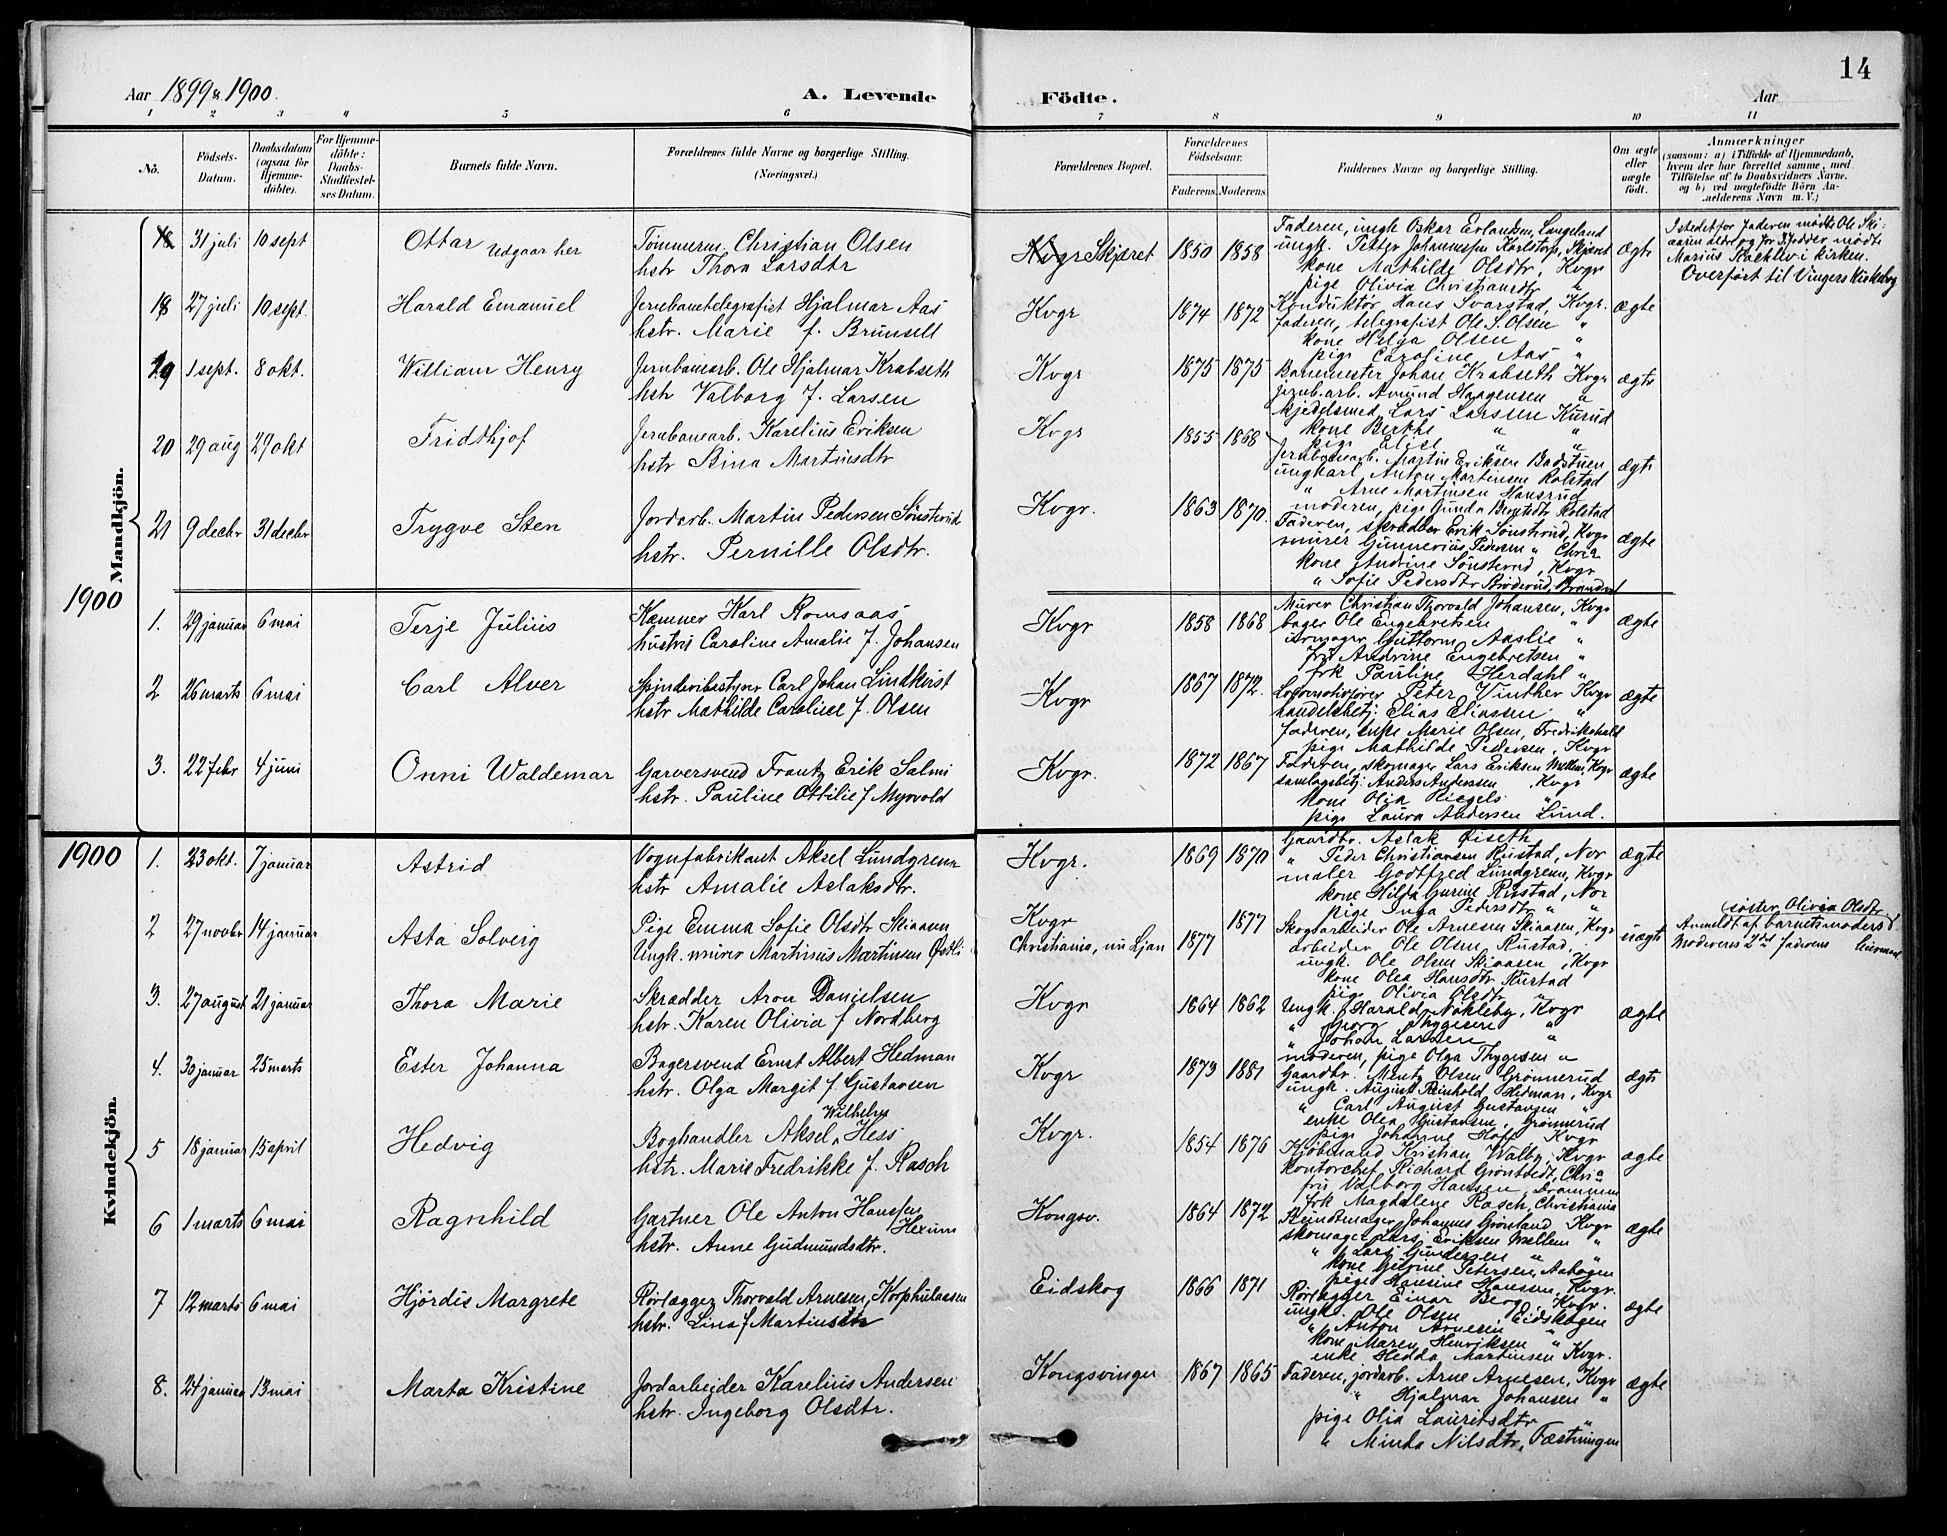 14
Aar 1899 & 1900.
A. Levende
Födte.
Aar
1 2 3 4 5 6 7 8 9 10 11
No.
Födsels-Datum.
Daabsdatum (ogsaa for Hjemme-döbte).
For Hjemme-döbte: Daabs-Stadfæstel-ses Datum.
Barnets fulde Navn.
Forældrenes fulde Navne og borgerlige Stilling. (Næringsvei.)
Forældrenes Bopæl.
Forældrenes Födselsaar.
Faderens. Moderens.
Faddernes Navne og borgerlige Stilling.
Om ægte eller uægte födt.
Anmærkninger
(saasom: a) i Tilfælde af Hjemmedaab, hvem der har forrettet samme, med Tilföielse af to Daabsvidners Navne. og b) ved uægtefödte Börn An-mælderens Navn m. V.)
Mandkjön.
18 31 juli 10 sept Ottar Udgaar her
Tömmerm. Christian Olsen
hstr Thora Larsdtr
Kvgr Skjæret 1850 1858
Faderen, ungk Oskar Erlandsen, Langeland
ungk. Petter Johannesen Karlstorp, Skjæret
kone Mathilde Olsdtr, Kvgr
pige Olivia Christiansdtr "
ægte
Istedetfor Faderen mödte Ole Ski-
aasen ældre og for P. Fadder mödte
Marius Rakklev i kirken.
Overført til Vingers Kirkebog
18 27 juli 10 sept. Harald Emanuel
Jernbanetelegrafist Hjalmar Aas
hstr. Marie f. Brunsell
Kvgr 1874 1872
Konduktör Hans Svarstad, Kvgr.
Faderen, telegrafist Ole S. Olsen "
kone Helga Olsen "
pige Caroline Aas "
ægte
19 1 sept. 8 okt. William Henry
Jernbanearb. Ole Hjalmar Krabseth
hstr Valborg f. Larsen
Kvgr 1875 1875
Banemester Johan Krabseth Kvgr
jernb.arb. Amund Haagensen "
kjedelsmed Lars Larssen Kurud
kone Berthe " "
pige Elise " "
ægte
20 29 aug 29 okt Fridthjof
Jernbanearb. Karelius Eriksen
hstr Stina Martinsdtr
Kvgr 1855 1868
Jernbanearb. Martin Eriksen Badstuen
ungkarl Anton Martinsen Rolstad
" Arne Martinsen Hansrud
moderen, pige Gunda Berntsdtr Rolstad
ægte
21 9 decbr 31 decbr Trygve Sten
Jordarb. Martin Pedersen Sönsterud
hstr. Pernille Olsdtr.
Kvgr. 1863 1870.
Faderen, skrædder Erik Sönsterud, Kvgr
murer Gunnerius Pedersen " Chria
kone Andrine Sönsterud, Kvgr
" Sofie Pedersdtr Bröderud, Brandval
ægte
1900
1. 29 januar 6 mai Terje Julius
Kæmner Karl Romsaas
hustru Caroline Amalie f. Johansen
Kvgr 1858 1868
Murer Christian Thorvald Johansen, Kvgr
bager Ole Engebretsen "
urmager Guttorm Aaslie "
fru Andrine Engebretsen "
frk Pauline Herdahl "
ægte
2 26 marts 6 mai Carl Alver
Spinderibestyrer Carl Johan Lindkvist
hstr Mathilde Caroline f. Olsen
Kvgr 1867 1872.
Locomotivförer Peter Vinther Kvgr
handelsbetj. Elias Eliassen "
Faderen, enke Marie Olsen, Fredrikshald
pige Mathilde Pedersen, Kvgr
ægte
3. 22 febr 4 juni Onni Waldemar
Garversvend Frantz Erik Salmi
hstr. Pauline Ottilie f. Myrvold
Kvgr. 1872 1867
Faderen, skomager Lars Eriksen Mellem, Kvgr
samlagsbetj. Anders Andersen, Kvgr
kone Olia Riegels "
pige Laura Andersen Lund.
ægte
Kvindekjön.
1900
1. 23 okt. 7 januar Astrid
Vognfabrikant Aksel Lundgrenn
hstr Amalie Aslaksdtr.
Kvgr. 1869 1870
Gaardbr. Aslak Öiseth
" Peder Christiansen Rustad, Nor
maler Godtfred Lundgrenn, Kvgr
kone Hilda Gurine Rustad, Nor
pige Inga Pedersdtr " "
ægte
2 27 novbr 14 januar Asta Solveig
Pige Emma Sofie Olsdtr Skiaasen
Ungk. murer Martinius Martinsen Östli
Kvgr
Christiania, nu Ljan 1877 1877
Skogsarbeider Ole Arnesen Skiaasen, Kvgr
arbeider Ole Olsen, Rustad,
ungk. Ole Olsen Skiaasen, Kvgr
kone Olea Hansdtr Rustad
pige Olivia Olsdtr "
uægte
(söster, Olivia Olsdtr
Anmeldt af barnets moders
Moderens 2det Faderens
3. 27 august 21 januar Thora Marie
Skrædder Aron Danielsen
hstr. Karen Olivia f Nordberg
Kvgr 1864 1862
Ungk. Harald Nökleby, Kvgr
" Georg Thygesen "
" Johan Larssen "
moderen, pige Olga Thygesen "
ægte
4. 30 januar 25 marts Ester Johanna
Bagersvend Ernst Albert Hedman
hstr. Olga Margit f. Gustavsen
Kvgr 1873 1881
Gaardbr. Mentz Olsen Grönnerud
ungk. August Reinhold Hedman, Kvgr
" Carl August Gustavsen "
enke Olea Gustavsen, Grönnerud
pige Johanne Hoff Kvgr
ægte
5 18 januar 15 april Hedvig
Boghandler Aksel Wilhelm Hess
hstr. Marie Fredrikke f. Rasch
Kvgr. 1854 1876
Kjöbmand Kristian Walby, Kvgr
kontorchef Richard Gröntvedt, Chria
fru Valborg Hansen, Drammen
frk Magdalene Rasch, Christiania
ægte
6 1 marts 6 mai Ragnhild
Gartner Ole Anton Hanssen Hexum
hstr. Anne Gudmundsdtr.
Kongsv. 1864 1872
Buntmager Johannes Grönland, Kvgr
skomager Lars Eriksen Mellem "
" Lars Gundersen " "
kone Gurine Petersen, Aabogen
pige Hansine Hanssen, Kvgr.
ægte
7 12 marts 6 mai Hjördis Margrete
Rörlægger Thorvald Arnesen, Korphulaasen
hstr. Lina f Martinsdtr
Eidskog 1866 1871
Rörlægger Einar Berg, Kvgr.
ungk. Ole Olsen, Eidskogen
" Anton Arnesen "
kone Maren Henriksen "
enke Hedda Martinsen Kvgr.
ægte
8. 24 januar 13 mai Marta Kristine
Jordarbeider Karelius Andersen
hstr. Ingeborg Olsdtr.
Kongsvinger 1867 1865
Faderen, jordarb. Arne Arnesen, Kvgr
" Hjalmar Johansen "
pige Olia Lauritsdtr "
" Minda Nilsdtr, Fæstningen
ægte